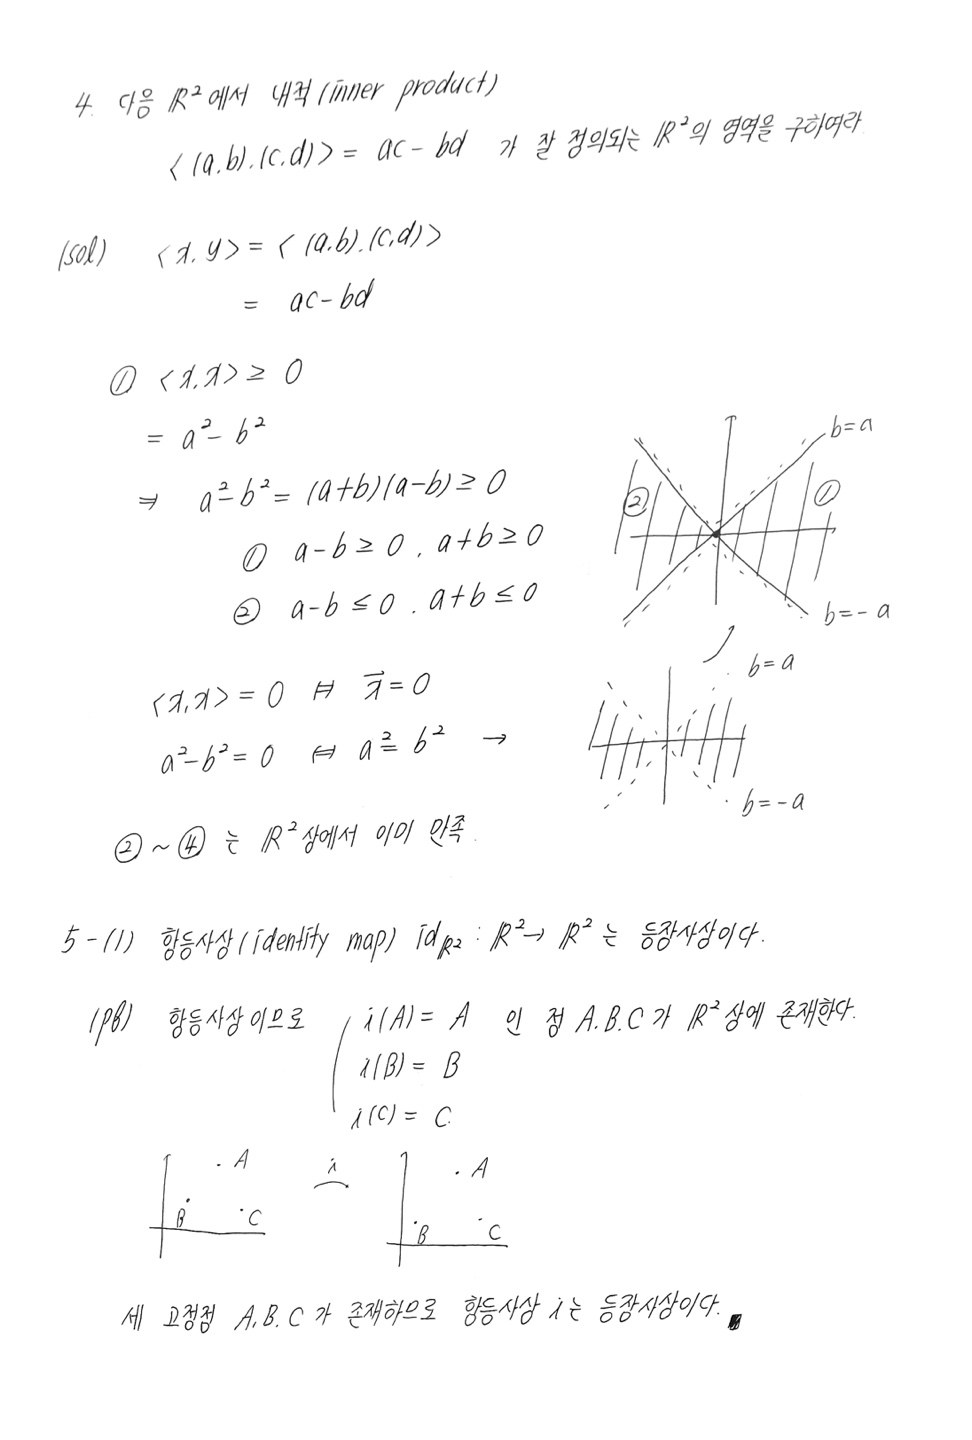 4. 다음 ℝ²에서 내적 (inner product)
<(a,b),(c,d)> = ac - bd 가 잘 정의되는 ℝ²의 영역을 구하여라
(sol) <x, y> = <(a,b),(c,d)>
= ac - bd
① <x,x> ≥ 0
= a² - b²
⇒ a² - b² = (a+b)(a-b) ≥ 0
① a-b ≥ 0, a+b ≥ 0
② a-b ≤ 0, a+b ≤ 0
b=a
② ①
b=-a
<x,x> = 0 ⇔ x⃗ = 0
a² - b² = 0 ⇔ a² = b² →
b=a
b=-a
② ~ ④ 는 ℝ² 상에서 이미 만족.
5-(1) 항등사상 (identity map) id_ℝ² : ℝ² → ℝ² 는 등장사상이다.
(pf) 항등사상이므로 i(A) = A 인 점 A.B.C가 ℝ²상에 존재한다.
i(B) = B
i(C) = C.
A i A
B C B C
세 고정점 A.B.C가 존재하므로 항등사상 i는 등장사상이다.